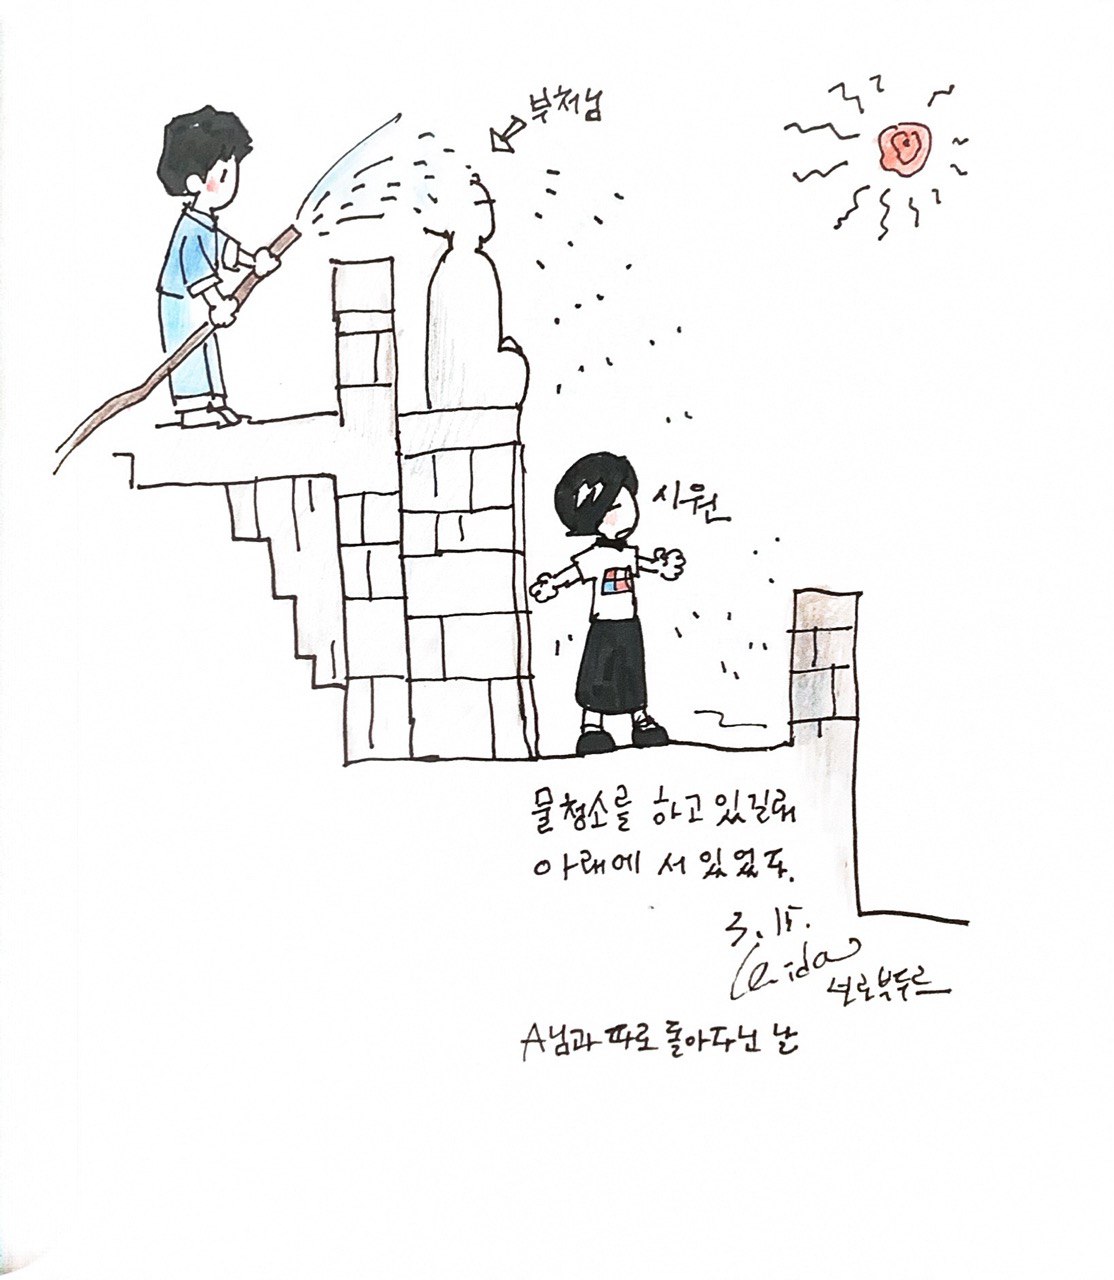 부처님
시원
물청소를 하고 있길래
아래에 서 있었다.
3.15.
보로부두르
A님과 따로 돌아다닌 날